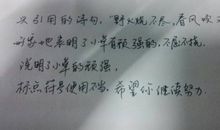 引用的诗句,“野火烧不尽,春风吹
地表明了小草有顽强的,不屈不挠,
说明了小草的顽强,
标点符号使用不当,希望你继续努力.